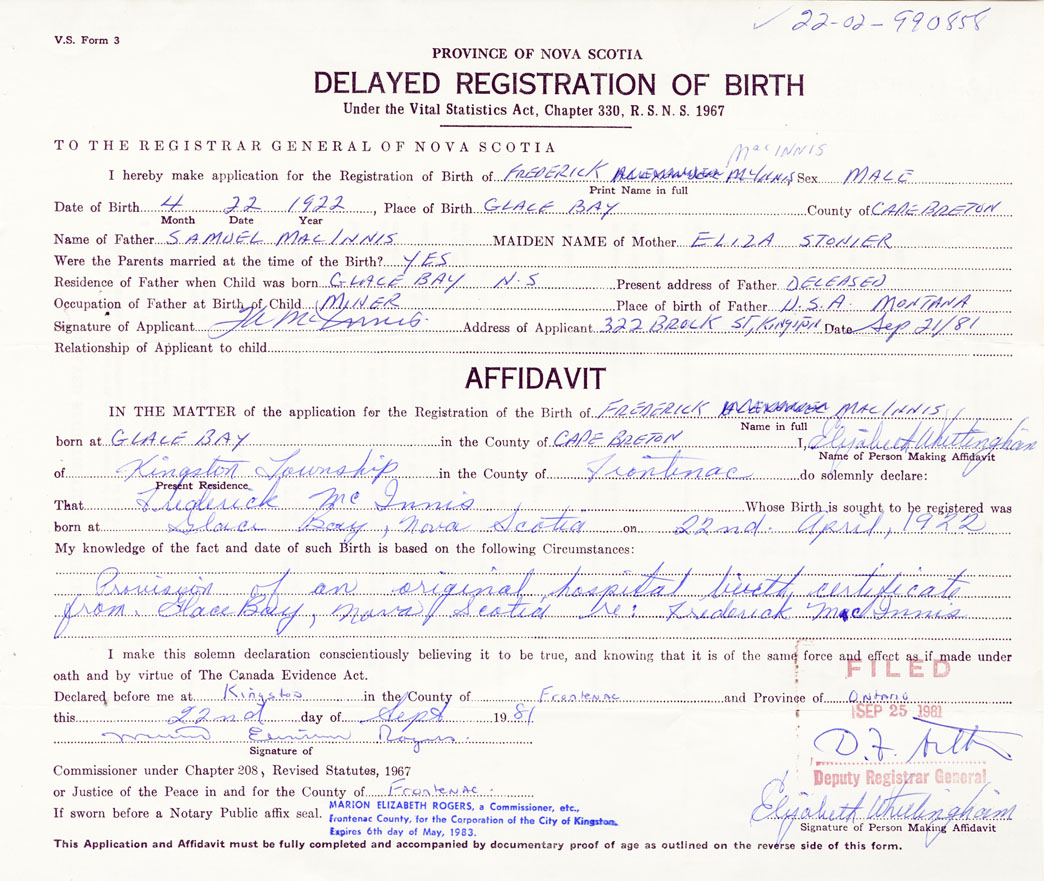 ✓ 22-02-990858
V.S. Form 3
PROVINCE OF NOVA SCOTIA
DELAYED REGISTRATION OF BIRTH
Under the Vital Statistics Act, Chapter 330, R.S.N.S. 1967
TO THE REGISTRAR GENERAL OF NOVA SCOTIA
MacINNIS
I hereby make application for the Registration of Birth of FREDERICK ALEXANDER McINNIS Sex MALE
Print Name in full
Date of Birth 4 22 1922, Place of Birth GLACE BAY County of CAPE BRETON
Month Date Year
Name of Father SAMUEL MACINNIS MAIDEN NAME of Mother ELIZA STONIER
Were the Parents married at the time of the Birth? YES
Residence of Father when Child was born GLACE BAY N.S Present address of Father DECEASED
Occupation of Father at Birth of Child MINER Place of birth of Father U.S.A. MONTANA
Signature of Applicant McInnis Address of Applicant 322 BROCK ST, KINGSTON Date Sep 21/81
Relationship of Applicant to child
AFFIDAVIT
IN THE MATTER of the application for the Registration of the Birth of FREDERICK ALEXANDER MACINNIS
Name in full
born at GLACE BAY in the County of CAPE BRETON I, Elizabeth Whittingham
Name of Person Making Affidavit
of Kingston Township in the County of Frontenac do solemnly declare:
Present Residence
That Frederick McInnis Whose Birth is sought to be registered was
born at Glace Bay, Nova Scotia on 22nd. April, 1922
My knowledge of the fact and date of such Birth is based on the following Circumstances:
Provision of an original hospital birth certificate
from Glace Bay, Nova Scotia re: Frederick MacInnis
I make this solemn declaration conscientiously believing it to be true, and knowing that it is of the same force and effect as if made under
oath and by virtue of The Canada Evidence Act.
FILED
Declared before me at Kingston in the County of Frontenac and Province of Ontario
this 22nd day of Sept 1981
SEP 25 1981
Rogers
Signature of
D. F.
Commissioner under Chapter 208, Revised Statutes, 1967
Deputy Registrar General
or Justice of the Peace in and for the County of Frontenac
If sworn before a Notary Public affix seal.
MARION ELIZABETH ROGERS, a Commissioner, etc.,
Frontenac County, for the Corporation of the City of Kingston.
Expires 6th day of May, 1983.
Elizabeth Whittingham
Signature of Person Making Affidavit
This Application and Affidavit must be fully completed and accompanied by documentary proof of age as outlined on the reverse side of this form.